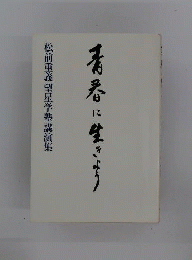 青春に生きよう
松前重義望星学塾講演集